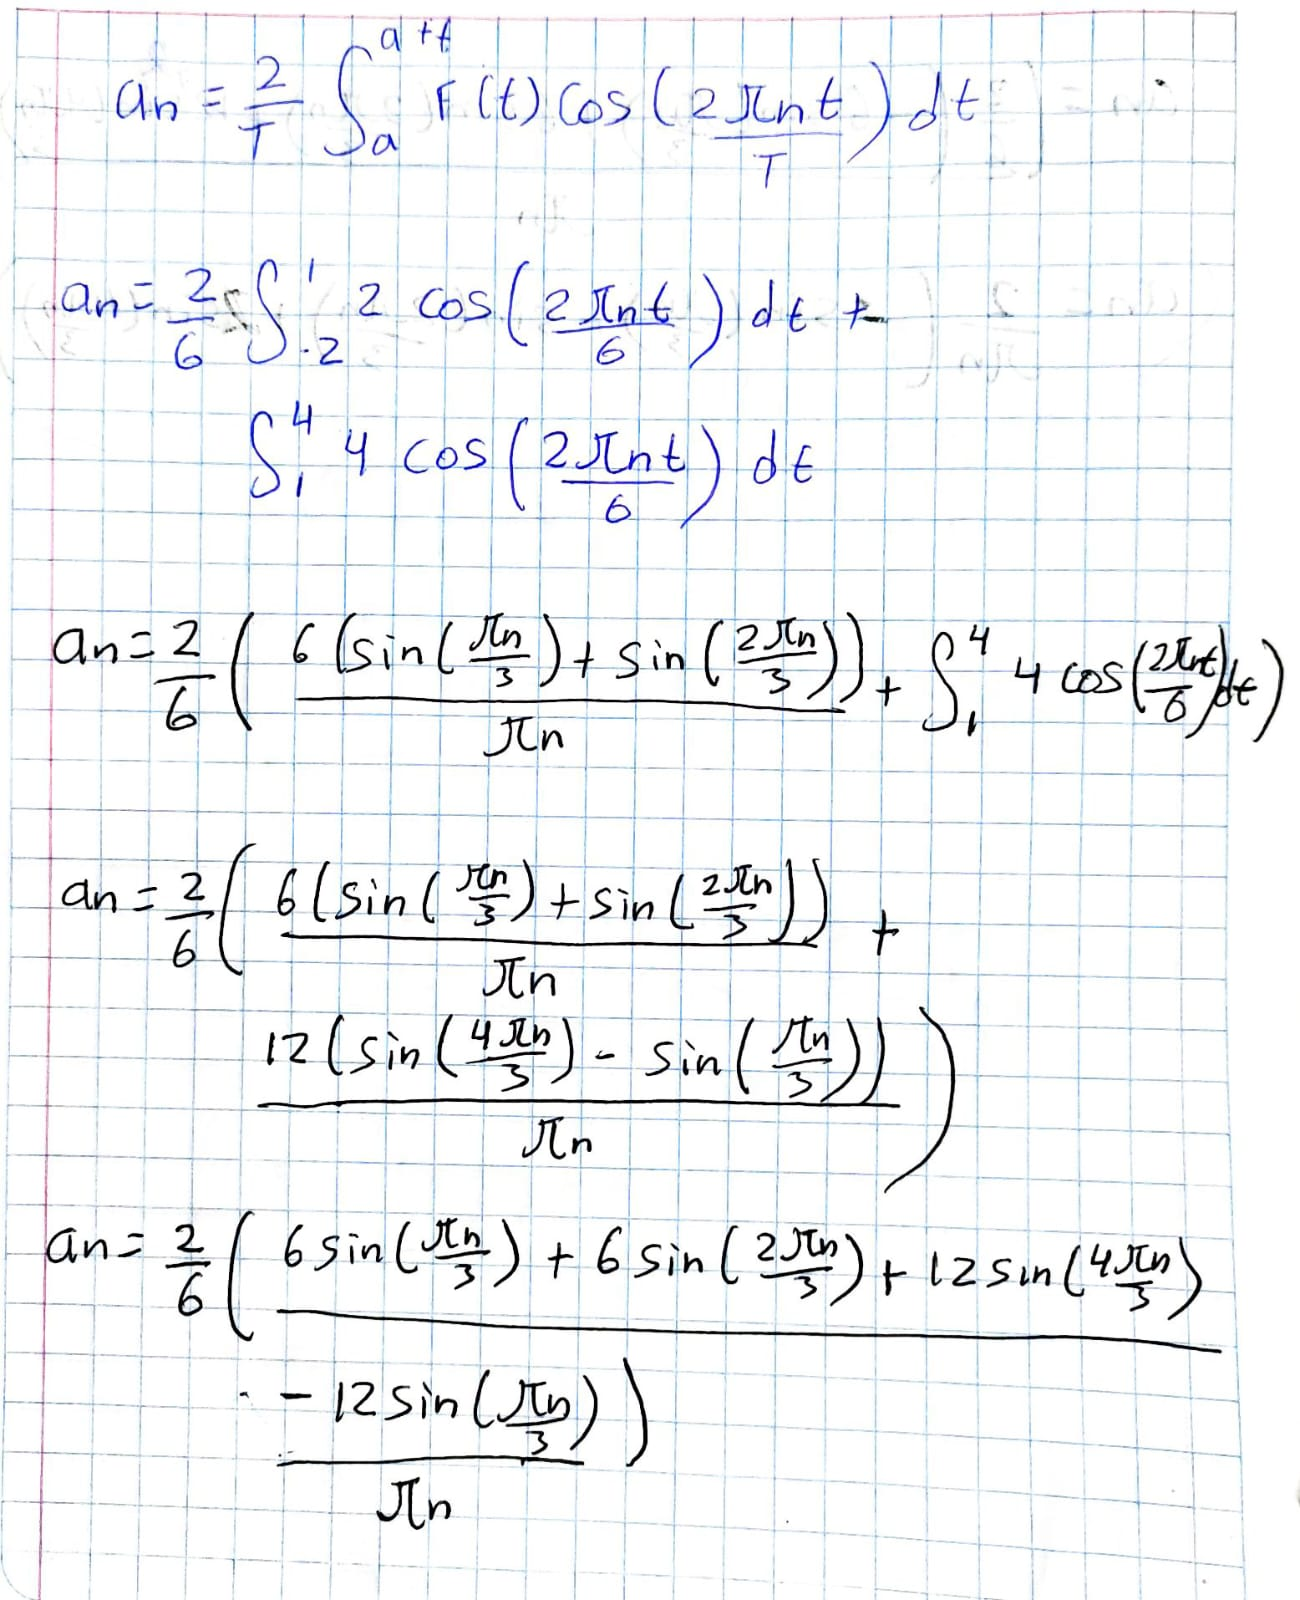 an = 2/T ∫_a^{a+t} F(t) cos(2πnt/T) dt
an = 2/6 ∫_{-2}^{1} 2 cos(2πnt/6) dt +
∫_1^4 4 cos(2πnt/6) dt
an = 2/6 ( 6(sin(πn/3) + sin(2πn/3))/πn + ∫_1^4 4 cos(2πnt/6) dt )
an = 2/6 ( 6(sin(πn/3) + sin(2πn/3))/πn +
12(sin(4πn/3) - sin(πn/3))/πn )
an = 2/6 ( 6 sin(πn/3) + 6 sin(2πn/3) + 12 sin(4πn/3)
- 12 sin(πn/3) )
πn